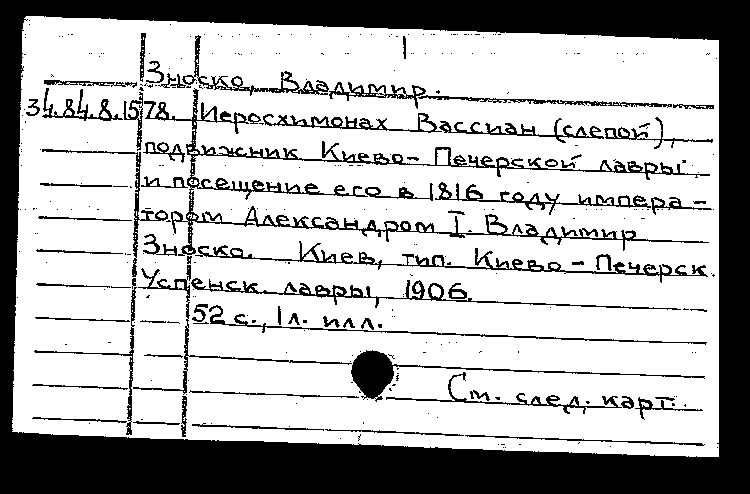 Зноско, Владимир.
34.84.8.1578. Иеросхимонах Вассиан (слепой),
подвижник Киево-Печерской лавры
и посещение его в 1816 году импера-
тором Александром I. Владимир
Зноско. Киев, тип. Киево-Печерск.
Успенск. лавры, 1906.
52 с., 1 л. илл.
См. след. карт.